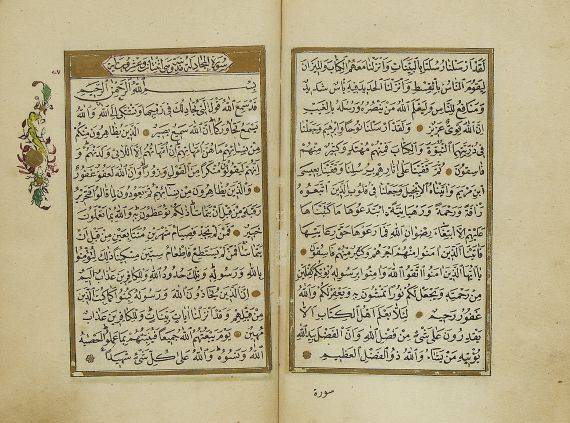 لقد ارسلنا رسلنا بالبينات وانزلنا معهم الكتاب والميزان
ليقوم الناس بالقسط وانزلنا الحديد فيه بأس شديد
ومنافع للناس وليعلم الله من ينصره ورسله بالغيب
ان الله قوي عزيز ولقد ارسلنا نوحا وابرهيم وجعلنا
في ذريتهما النبوة والكتاب فمنهم مهتد وكثير منهم
فاسقون ثم قفينا على آثارهم برسلنا وقفينا بعيسى
ابن مريم وآتيناه الانجيل وجعلنا في قلوب الذين اتبعوه
رأفة ورحمة ورهبانية ابتدعوها ما كتبناها
عليهم الا ابتغاء رضوان الله فما رعوها حق رعايتها
فآتينا الذين آمنوا منهم اجرهم وكثير منهم فاسقون
يا ايها الذين آمنوا اتقوا الله وآمنوا برسوله يؤتكم كفلين
من رحمته ويجعل لكم نورا تمشون به ويغفر لكم والله
غفور رحيم لئلا يعلم اهل الكتاب الا
يقدرون على شئ من فضل الله وان الفضل بيد الله
يؤتيه من يشاء والله ذو الفضل العظيم
سورة
سورة المجادلة
بسم الله الرحمن الرحيم
قد سمع الله قول التي تجادلك في زوجها وتشتكي الى الله والله
يسمع تحاوركما ان الله سميع بصير الذين يظاهرون منكم
من نسائهم ما هن امهاتهم ان امهاتهم الا اللائي ولدنهم و
انهم ليقولون منكرا من القول وزورا وان الله لعفو غفور
والذين يظاهرون من نسائهم ثم يعودون لما قالوا فتحرير
رقبة من قبل ان يتماسا ذلكم توعظون به والله بما تعملون
خبير فمن لم يجد فصيام شهرين متتابعين من قبل ان
يتماسا فمن لم يستطع فاطعام ستين مسكينا ذلك لتؤمنوا
بالله ورسوله وتلك حدود الله وللكافرين عذاب اليم
ان الذين يحادون الله ورسوله كبتوا كما كبت الذين
من قبلهم وقد انزلنا آيات بينات وللكافرين عذاب
مهين يوم يبعثهم الله جميعا فينبئهم بما عملوا احصيه
الله ونسوه والله على كل شئ شهيد